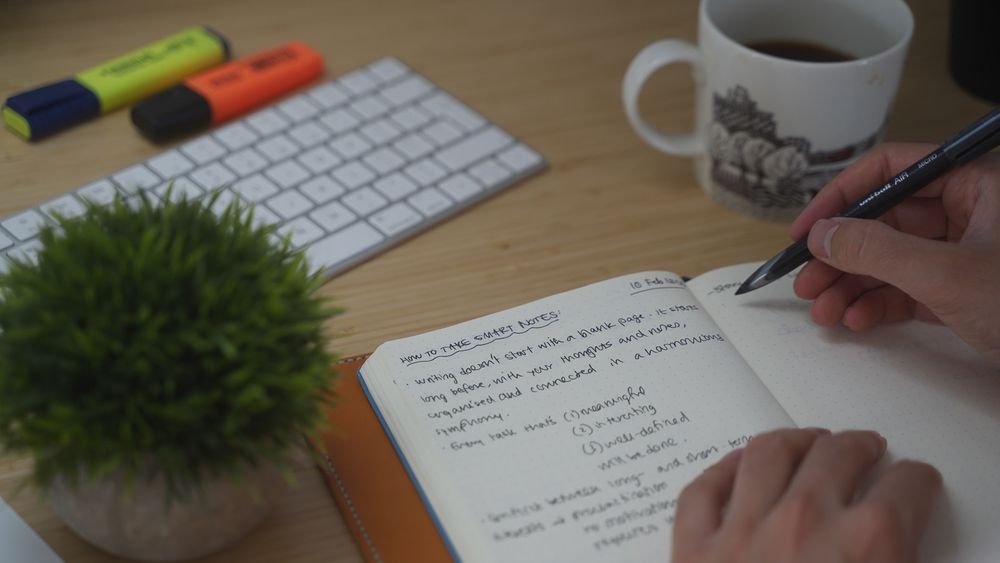 10 Feb
HOW TO TAKE SMART NOTES:
· Writing doesn't start with a blank page. It starts
long before, with your thoughts and notes,
organised and connected in a harmonious
symphony.
· Every task that's (1) meaningful
(2) interesting
(3) well-defined
will be done.
· Conflict between long- and short-term
interests → procrastination
no motivation
requires
uni-ball AIR MICRO